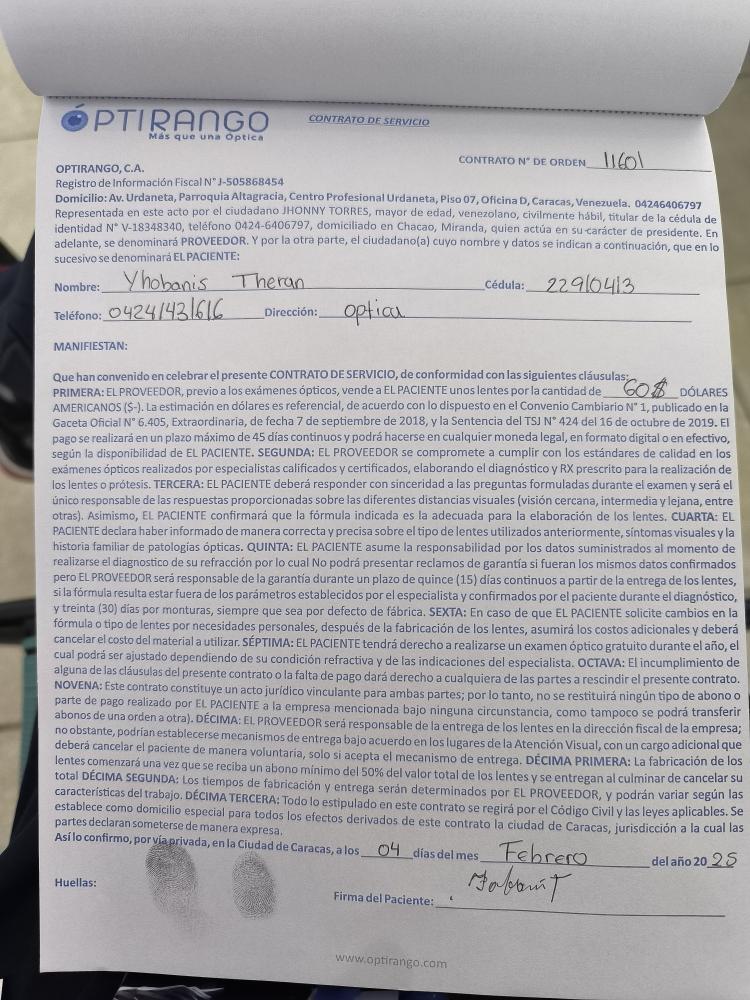 ÓPTIRANGO
Más que una Óptica
CONTRATO DE SERVICIO
CONTRATO N° DE ORDEN 11601
OPTIRANGO, C.A.
Registro de Información Fiscal N° J-505868454
Domicilio: Av. Urdaneta, Parroquia Altagracia, Centro Profesional Urdaneta, Piso 07, Oficina D, Caracas, Venezuela. 04246406797
Representada en este acto por el ciudadano JHONNY TORRES, mayor de edad, venezolano, civilmente hábil, titular de la cédula de
identidad N° V-18348340, teléfono 0424-6406797, domiciliado en Chacao, Miranda, quien actúa en su carácter de presidente. En
adelante, se denominará PROVEEDOR. Y por la otra parte, el ciudadano(a) cuyo nombre y datos se indican a continuación, que en lo
sucesivo se denominará EL PACIENTE:
Nombre: Yhobanis Theran Cédula: 22910413
Teléfono: 04241431616 Dirección: optica
MANIFIESTAN:
Que han convenido en celebrar el presente CONTRATO DE SERVICIO, de conformidad con las siguientes cláusulas:
PRIMERA: EL PROVEEDOR, previo a los exámenes ópticos, vende a EL PACIENTE unos lentes por la cantidad de 60$ DÓLARES
AMERICANOS ($-). La estimación en dólares es referencial, de acuerdo con lo dispuesto en el Convenio Cambiario N° 1, publicado en la
Gaceta Oficial N° 6.405, Extraordinaria, de fecha 7 de septiembre de 2018, y la Sentencia del TSJ N° 424 del 16 de octubre de 2019. El
pago se realizará en un plazo máximo de 45 días continuos y podrá hacerse en cualquier moneda legal, en formato digital o en efectivo,
según la disponibilidad de EL PACIENTE. SEGUNDA: EL PROVEEDOR se compromete a cumplir con los estándares de calidad en los
exámenes ópticos realizados por especialistas calificados y certificados, elaborando el diagnóstico y RX prescrito para la realización de
los lentes o prótesis. TERCERA: EL PACIENTE deberá responder con sinceridad a las preguntas formuladas durante el examen y será el
único responsable de las respuestas proporcionadas sobre las diferentes distancias visuales (visión cercana, intermedia y lejana, entre
otras). Asimismo, EL PACIENTE confirmará que la fórmula indicada es la adecuada para la elaboración de los lentes. CUARTA: EL
PACIENTE declara haber informado de manera correcta y precisa sobre el tipo de lentes utilizados anteriormente, síntomas visuales y la
historia familiar de patologías ópticas. QUINTA: EL PACIENTE asume la responsabilidad por los datos suministrados al momento de
realizarse el diagnostico de su refracción por lo cual No podrá presentar reclamos de garantía si fueran los mismos datos confirmados
pero EL PROVEEDOR será responsable de la garantía durante un plazo de quince (15) días continuos a partir de la entrega de los lentes,
si la fórmula resulta estar fuera de los parámetros establecidos por el especialista y confirmados por el paciente durante el diagnóstico,
y treinta (30) días por monturas, siempre que sea por defecto de fábrica. SEXTA: En caso de que EL PACIENTE solicite cambios en la
fórmula o tipo de lentes por necesidades personales, después de la fabricación de los lentes, asumirá los costos adicionales y deberá
cancelar el costo del material a utilizar. SÉPTIMA: EL PACIENTE tendrá derecho a realizarse un examen óptico gratuito durante el año, el
cual podrá ser ajustado dependiendo de su condición refractiva y de las indicaciones del especialista. OCTAVA: El incumplimiento de
alguna de las cláusulas del presente contrato o la falta de pago dará derecho a cualquiera de las partes a rescindir el presente contrato.
NOVENA: Este contrato constituye un acto jurídico vinculante para ambas partes; por lo tanto, no se restituirá ningún tipo de abono o
parte de pago realizado por EL PACIENTE a la empresa mencionado bajo ninguna circunstancia, como tampoco se podrá transferir
abonos de una orden a otra). DÉCIMA: EL PROVEEDOR será responsable de la entrega de los lentes en la dirección fiscal de la empresa;
no obstante, podrían establecerse mecanismos de entrega bajo acuerdo en los lugares de la Atención Visual, con un cargo adicional que
deberá cancelar el paciente de manera voluntaria, solo si acepta el mecanismo de entrega. DÉCIMA PRIMERA: La fabricación de los
lentes comenzará una vez que se reciba un abono mínimo del 50% del valor total de los lentes y se entregan al culminar de cancelar su
total DÉCIMA SEGUNDA: Los tiempos de fabricación y entrega serán determinados por EL PROVEEDOR, y podrán variar según las
características del trabajo. DÉCIMA TERCERA: Todo lo estipulado en este contrato se regirá por el Código Civil y las leyes aplicables. Se
establece como domicilio especial para todos los efectos derivados de este contrato la ciudad de Caracas, jurisdicción a la cual las
partes declaran someterse de manera expresa.
Así lo confirmo, por vía privada, en la Ciudad de Caracas, a los 04 días del mes Febrero del año 2025
Huellas:
Firma del Paciente:
www.optirango.com